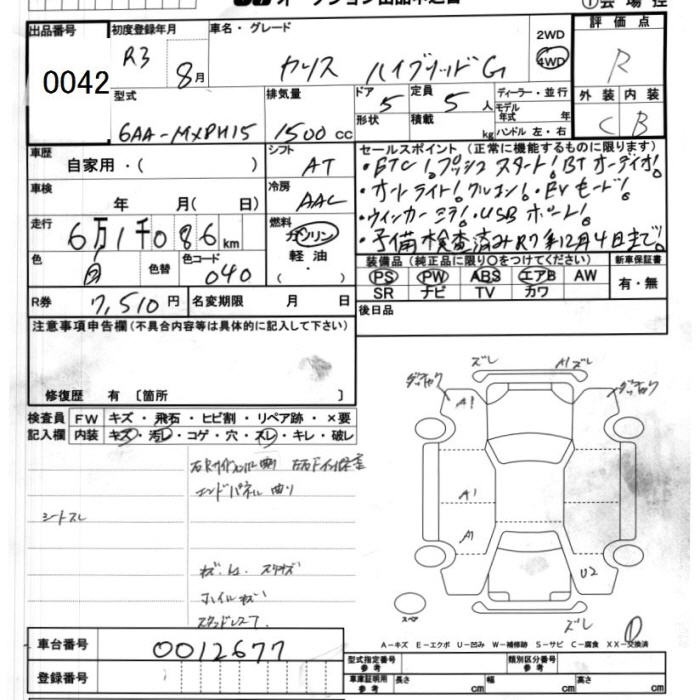 出品番号
0042
初度登録年月
R3 8月
車名・グレード
ヤリス ハイブリッドG
2WD
4WD
評価点
R
型式
6AA-MXPH15
排気量
1500cc
ドア
5
形状
定員
5人
積載
kg
ディーラー・並行
モデル年式 年
ハンドル 左・右
外装 内装
C B
車歴
自家用・( )
シフト
AT
セールスポイント (正常に機能するものに限ります)
・ETC!プッシュスタート!BTオーディオ!
・オートライト!クルコン!・EVモード!
・ウィンカーミラ!・USBポート!
・予備検査済みR7年12月4日まで!
車検
年 月( 日)
冷房
AAC
走行
6万1千086km
燃料
ガソリン
軽油
・( )
色
白
色替
色コード
040
装備品 (純正品に限り○をつけてください)
PS PW ABS エアB AW
SR ナビ TV カワ
新車保証書
有・無
R券
7,510円
名変期限 月 日
後日品
注意事項申告欄 (不具合内容等は具体的に記入して下さい)
修復歴 有 〔箇所 〕
検査員記入欄
FW キズ・飛石・ヒビ割・リペア跡・×要
内装 キズ・汚レ・コゲ・穴・スレ・キレ・破レ
エンドパネル曲り
シートスレ
ホイルキズ
スタッドレス7.
ズレ
A1ズレ
A1
A1
A1
U2
スペア
ズレ
A-キズ E-エクボ U-凹み W-補修跡 S-サビ C-腐食 XX-交換済
車台番号
0012677
登録番号
型式指定番号
参考
類別区分番号
参考
車庫証明用
参考
長さ cm
幅 cm
高さ cm